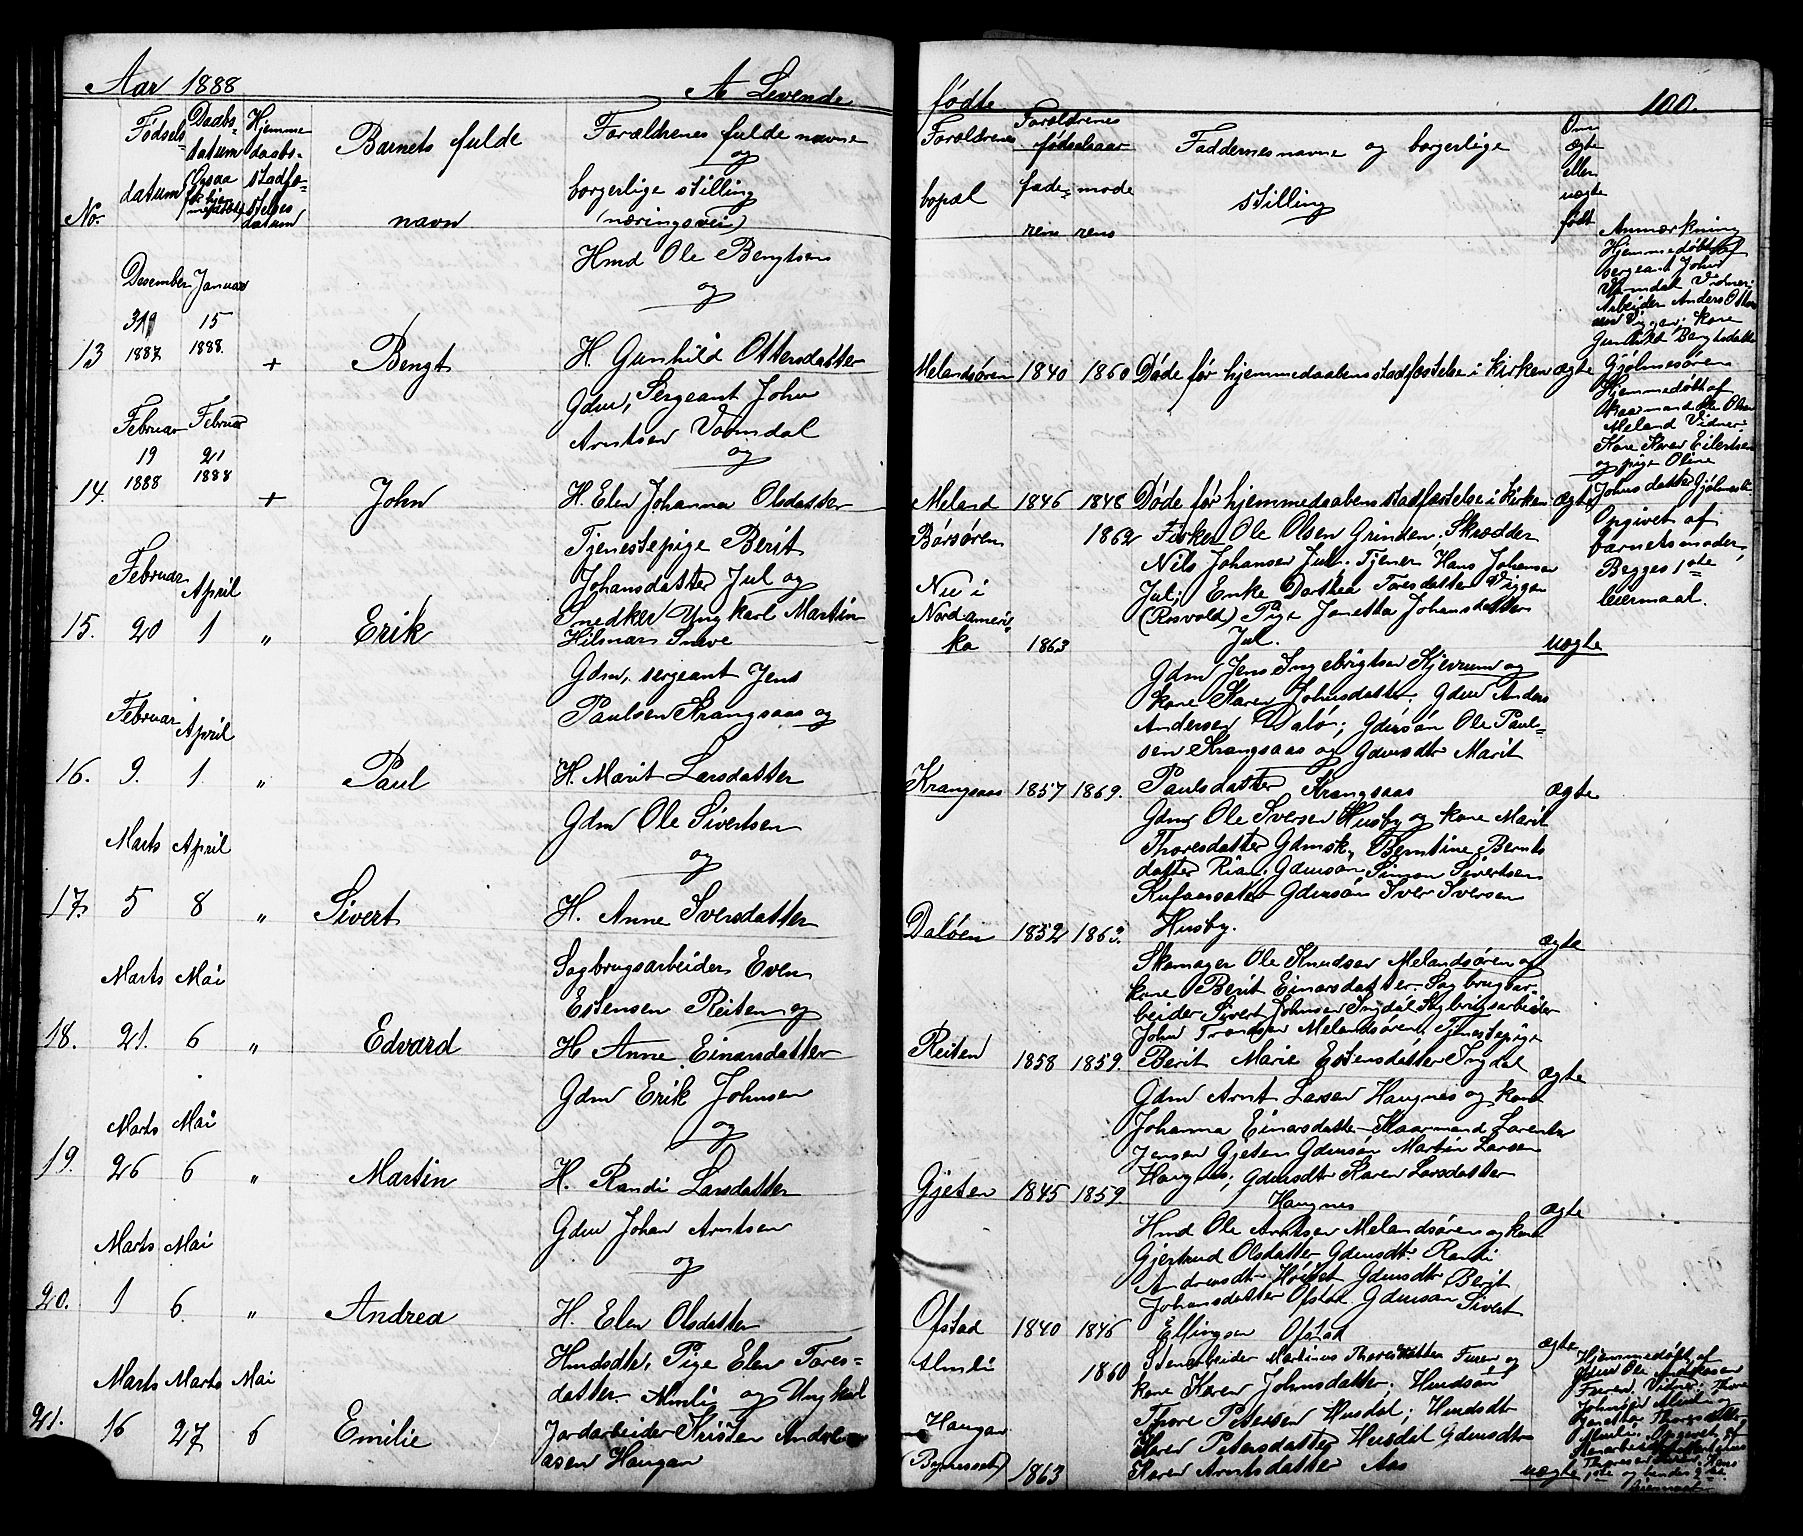 Aar 1888
A Levende
No.
Fødsels
datum
Daabs-
datum
(Ogsaa
Hjemme
daabs-
stadfæ-
stelses
datum
Barnets fulde
navn
Forældrenes fulde navne
og
borgerlige stilling
(næringsvei)
Desember Januar
13 1887 15 1888. +
Bengt
Hmd Ole Bengtsen
og
H. Gunhild Ottersdatter
Februar Februar
14. 19 1888 21 1888 +
John
Gdm, Sergeant John
Arntsen Vormdal
og
H. Elen Johanna Olsdatter
Februar April
15. 20 1 "
Erik
Tjenestepige Berit
Johansdatter Jul og
Snedker Ungkarl Martin
Hilmar Sneve
Februar April
16. 9. 1. "
Paul
Gdm, sergeant Jens
Paulsen Krangsaas og
H. Marit Larsdatter
Marts April
17. 5 8 "
Sivert
Gdm Ole Sivertsen
og
H. Anne Iversdatter
Marts Mai
18. 21. 6 "
Edvard
Sagbrugsarbeider Even
Estensen Reiten og
H. Anne Einarsdatter
Marts Mai
19. 26 6 "
Martin
Gdm Erik Johnsen
og
H. Randi Larsdatter
Marts Mai
20. 1 6. "
Andrea
Gdm Johan Arntsen
og
H. Elen Olsdatter
Marts Marts Mai
21. 16 27 6
Emilie
Hmdsdtr, Pige Elen Tores-
datter Almli og Ungkarl
Jordarbeider Kristen
Haugan
fødte
100.
Forældrenes
bopæl
Forældrenes
fødselsaar
fade- mode
rens rens
Faddernes navne og borgerlige
stilling
Om
ægte
eller
uægte
født
Anmærkning
Melandsøren 1840 1860 Døde før hjemmedaabens stadfæstelse i kirken ægte
Hjemmedøbt af
sergeant John
Vormdal Vidner:
Arbeider Anders
kone
Gunhild Bengtsdatter
Gjølmesøren
Meland 1846 1848 Døde før hjemmedaabens stadfæstelse i kirken ægte
Hjemmedøbt af
Olsen
Meland Vidner:
Kone Karen Eilertsen
og pige Oline
Johnsdatter
Børsøren 1862
Nu i
Nordameri-
ka 1863
Fisker Ole Olsen Grinden. Skrædder
Nils Johansen Jul. Tjener Hans Johansen
Jul; Enke Dorthea Toresdatter Viggen
Pige Janetta Johansdatter
Jul.
uægte
Opgivet af
barnets moder,
Begges 1ste
leiermaal.
Krangsaas 1857 1869.
Gdm Jens Ingebrigtsen Skjevrum og
kone Karen Johnsdatter; Gdm Anders
Andersen Daløn; Gdmsøn Ole Paul-
sen Krangsaas og Gdmsdtr Marit
Paulsdatter Krangsaas
ægte
Daløen 1852
Gdm Ole Iversen Husby og kone Marit
Thoresdatter Gdmsk, Berntine Bernts
datter Rian. Gdmsøn Simon Sivertsen
Gdmsøn Iver Iversen
Husby.
ægte
Reiten 1858 1859.
Skomager Ole Knudsen Melandsøren og
kone Berit Einarsdatter. Sagbrugsar-
beider Sivert Johnsen Ingdal Sagbrugsarbeider
John Trondsen Melandsøren, Tjenestepige
Berit Marie Estensdatter Ingdal
ægte
Gjeten 1845 1859
Gdm Arnt Larsen Haugnes og kone
Johanna Einarsdatter. Kaarmand Lorents
Jensen Gjeten Gdmsøn Martin Larsen
Haugnes; Gdmsdtr Karen Larsdatter
Haugnes
ægte
Ofstad 1840 1846
Hmd Ole Arntsen Melandsøren og kone
Gjertrud Olsdatter Gdmsdtr Randi
Andersdtr Gdmsdtr Berit
Johansdatter Ofstad. Gdmsøn Sivert
Ellingsen Ofstad
ægte
Almli 1860
Haugan
(Bynesset) 1863
Stenarbeider Martinus Furen og
kone Karen Johnsdatter; Hmdsøn
Thore Petersen Husdal; Hmdsdtr
Karen Petersdatter Husdal Gdmsdtr
Karen Arntsdatter Aas
uægte
Hjemmedøbt af
Gdm Ole
Furen. Vidner: Thore
Johnsen Almli og
Almli. Opgivet af